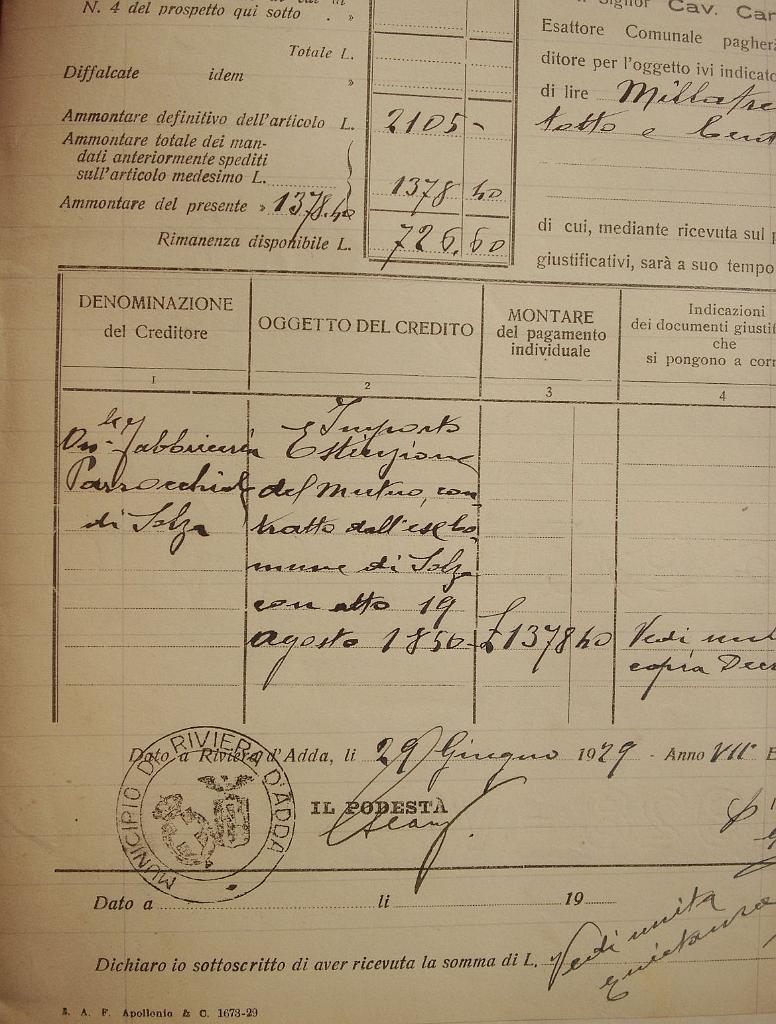 N. 4 del prospetto qui sotto . »
Totale L.
Diffalcate idem »
Ammontare definitivo dell'articolo L. 2105 -
Ammontare totale dei man-
dati anteriormente spediti
sull'articolo medesimo L.
1378 40
Ammontare del presente » 1378.40
Rimanenza disponibile L. 726.60
Signor Cav. Car
Esattore Comunale pagher
ditore per l'oggetto ivi indicato
di lire Millatre
totto e Cent
di cui, mediante ricevuta sul p
giustificativi, sarà a suo tempo
DENOMINAZIONE
del Creditore
OGGETTO DEL CREDITO
MONTARE
del pagamento
individuale
Indicazioni
dei documenti giustif
che
si pongono a corr
1 2 3 4
On. Fabbriceria
Parrocchiale
di Solza
Importo
Estinzione
del Mutuo, con
tratto dall'ex Co
mune di Solza
con atto 19
agosto 1850 -
£ 1378 40
Vedi
copia Decr
Dato a Riviera d'Adda, li 29 Giugno 1929 - Anno VII° E
IL PODESTÀ
MUNICIPIO DI RIVIERA D'ADDA
Dato a li 19
Dichiaro io sottoscritto di aver ricevuta la somma di L. Vedi unita
quietanza
E. A. F. Apollonio & C. 1673-29